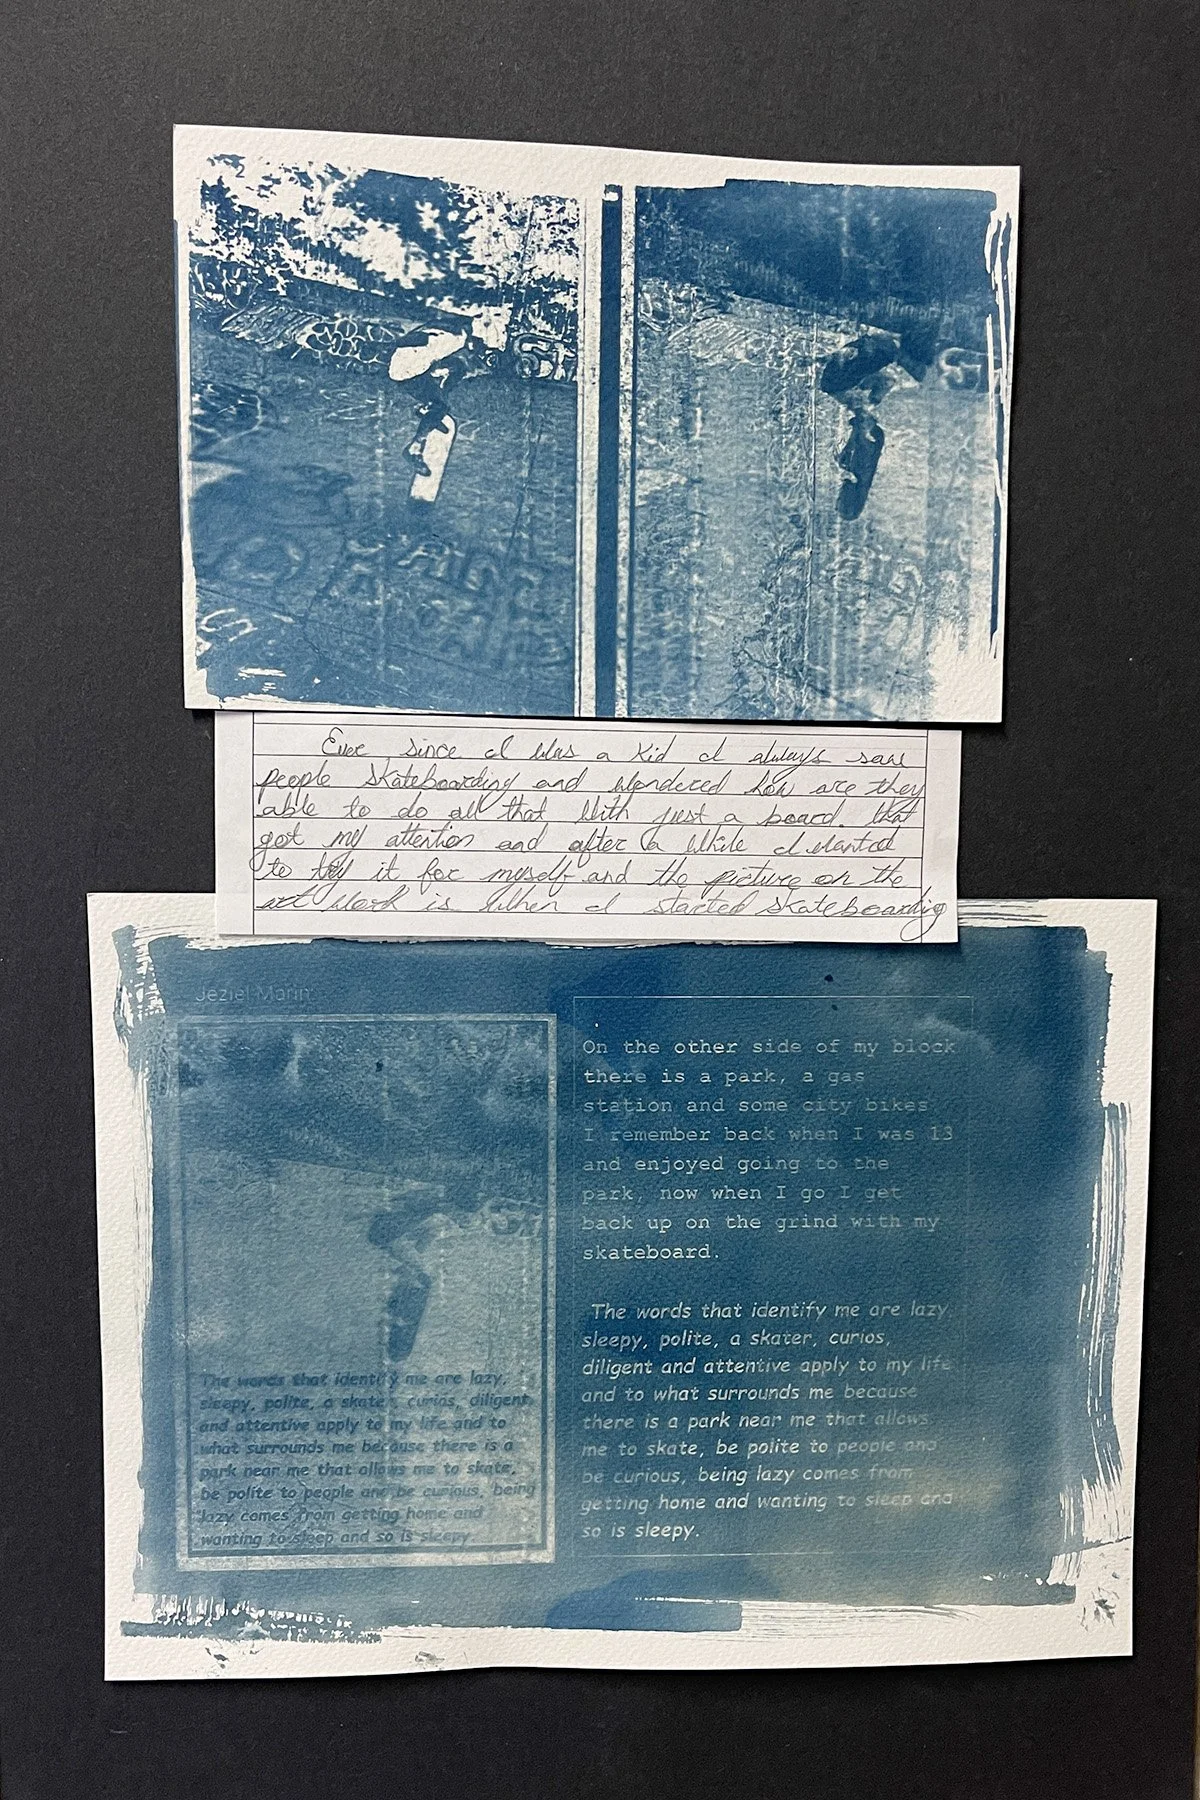 2
Ever since I was a kid I always saw
people skateboarding and wondered how are they
able to do all that with just a board. that
got my attention and after a while I wanted
to try it for myself and the picture on the
art work is when I started skateboarding
Jeziel Marin
The words that identify me are lazy,
sleepy, polite, a skater, curios, diligent
and attentive apply to my life and to
what surrounds me because there is a
park near me that allows me to skate,
be polite to people and be curious, being
lazy comes from getting home and
wanting to sleep and so is sleepy.
On the other side of my block
there is a park, a gas
station and some city bikes
I remember back when I was 13
and enjoyed going to the
park, now when I go I get
back up on the grind with my
skateboard.
The words that identify me are lazy
sleepy, polite, a skater, curios,
diligent and attentive apply to my life
and to what surrounds me because
there is a park near me that allows
me to skate, be polite to people and
be curious, being lazy comes from
getting home and wanting to sleep and
so is sleepy.